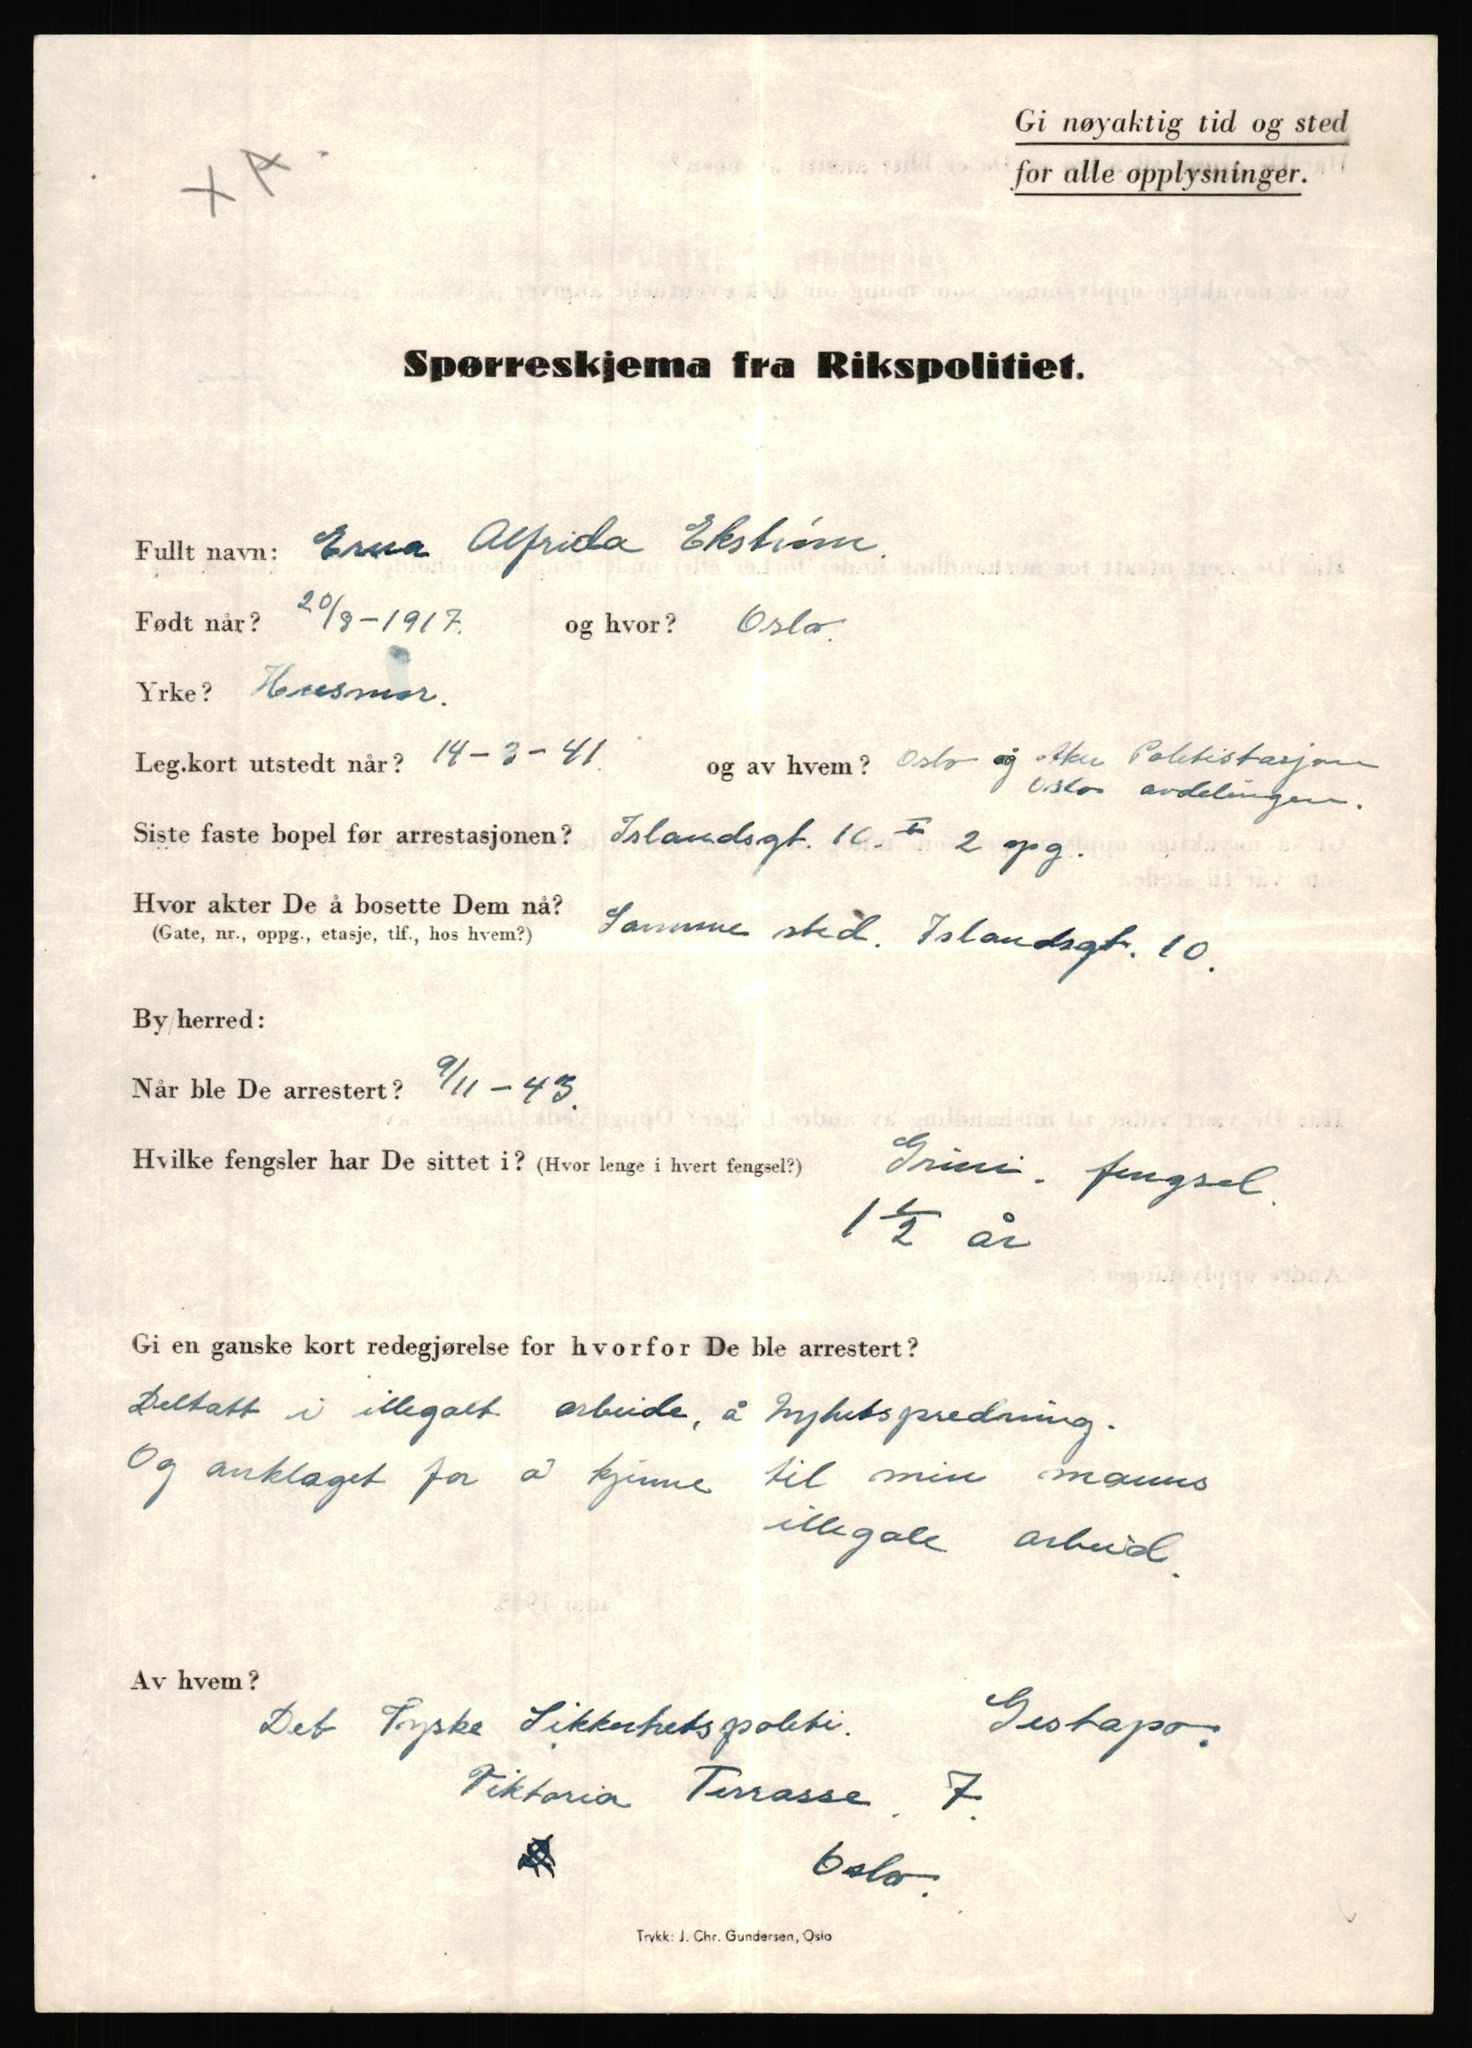 Gi nøyaktig tid og sted
for alle opplysninger.
X A
Spørreskjema fra Rikspolitiet.
Fullt navn: Erna Alfrida Ekstrøm.
Født når? 20/8-1917. og hvor? Oslo.
Yrke? Husmor.
Leg.kort utstedt når? 14-3-41. og av hvem? Oslo og Aker Politistasjon
Oslo avdelingen.
Siste faste bopel før arrestasjonen? Islandsgt. 10 2 opg.
Hvor akter De å bosette Dem nå? Samme sted. Islandsgt. 10.
(Gate, nr., oppg., etasje, tlf., hos hvem?)
By/herred:
Når ble De arrestert? 9/11-43.
Hvilke fengsler har De sittet i? (Hvor lenge i hvert fengsel?) Grini. fengsel.
1 1/2 år
Gi en ganske kort redegjørelse for hvorfor De ble arrestert?
Deltatt i illegalt arbeide, å Nyhetspredning.
Og anklaget for å kjenne til min manns
illegale arbeid.
Av hvem?
Det Tyske Sikkerhetspoliti. Gestapo.
Viktoria Terrasse. 7.
Oslo.
Trykk: J. Chr. Gundersen, Oslo